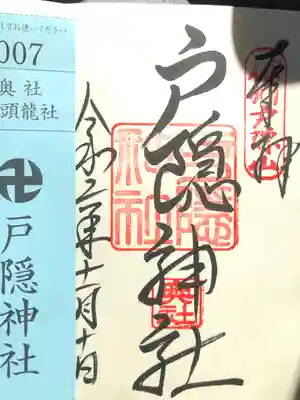 してお使いください
007
奥社
頭龍社
卍戸隠神社
奉拝
戸隠神社
奥社
令和二年十一月十日